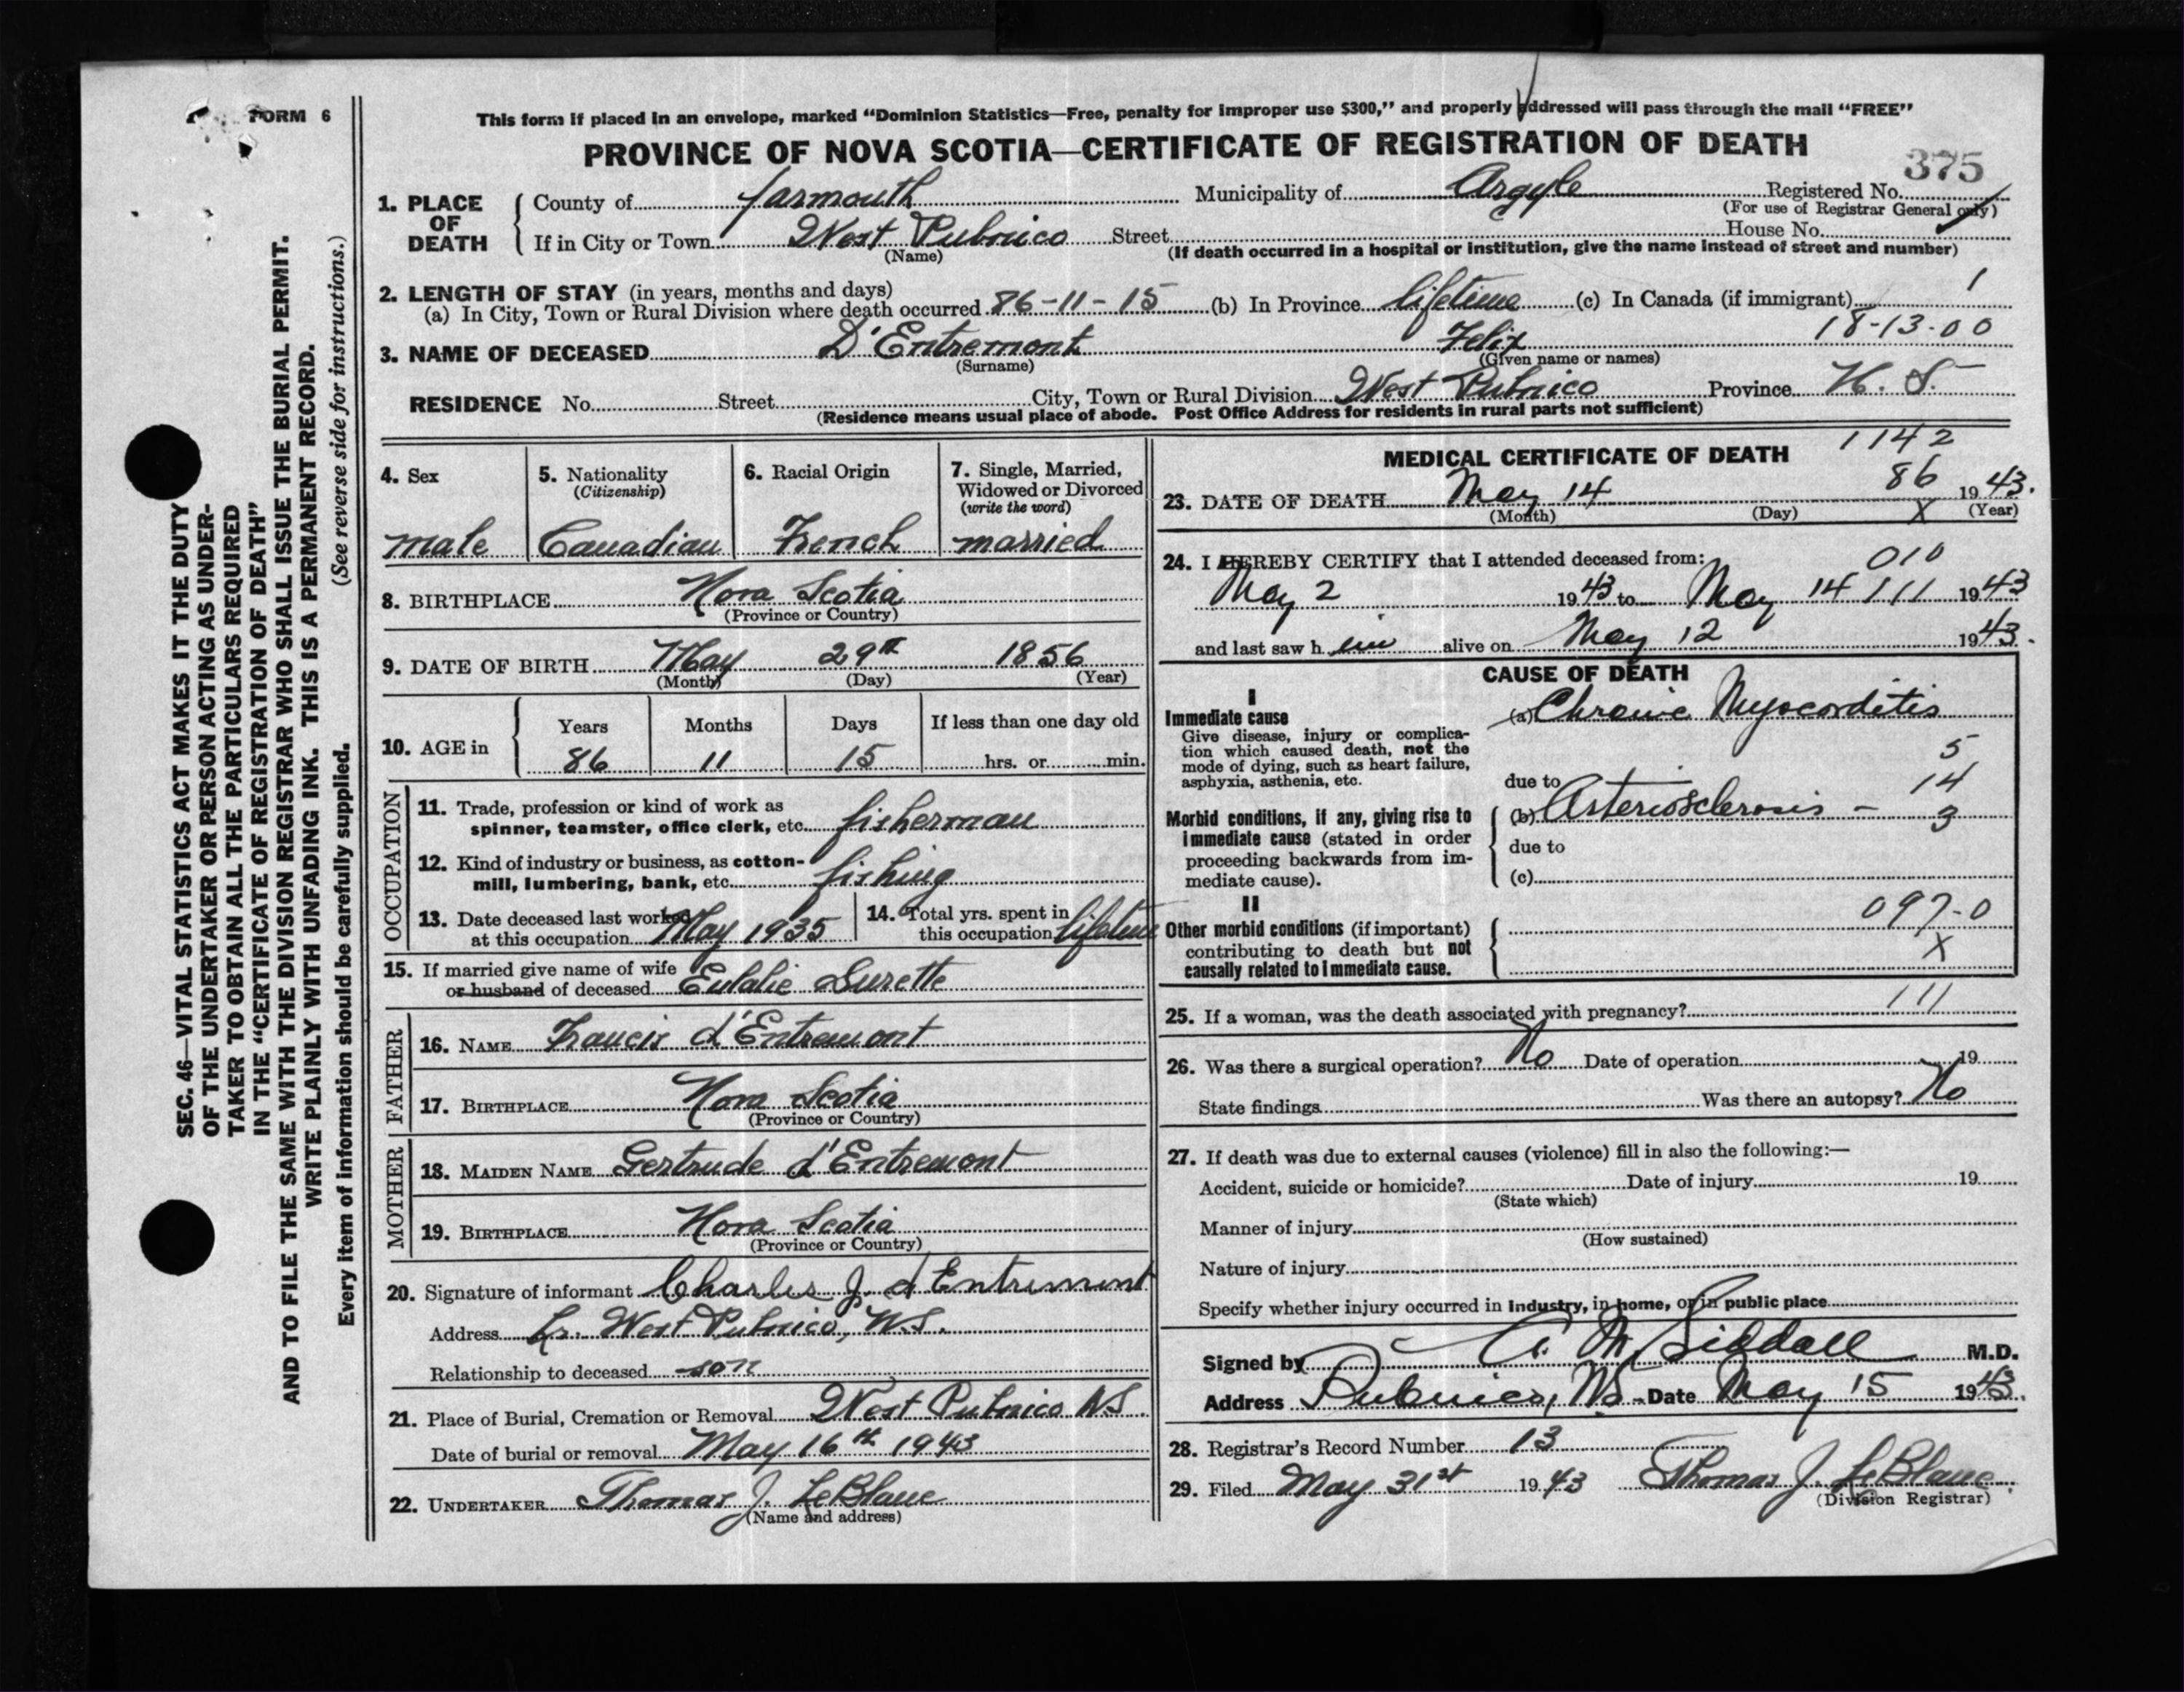 FORM 6
This form if placed in an envelope, marked "Dominion Statistics—Free, penalty for improper use $300," and properly addressed will pass through the mail "FREE"
PROVINCE OF NOVA SCOTIA—CERTIFICATE OF REGISTRATION OF DEATH
375
1. PLACE OF DEATH
County of Yarmouth Municipality of Argyle Registered No.
(For use of Registrar General only)
If in City or Town West Pubnico Street House No.
(Name) (If death occurred in a hospital or institution, give the name instead of street and number)
2. LENGTH OF STAY (in years, months and days)
(a) In City, Town or Rural Division where death occurred 86-11-15 (b) In Province lifetime (c) In Canada (if immigrant) 1
18-13-00
3. NAME OF DECEASED D'Entremont Felix
(Surname) (Given name or names)
RESIDENCE No. Street City, Town or Rural Division West Pubnico Province N. S.
(Residence means usual place of abode. Post Office Address for residents in rural parts not sufficient)
4. Sex male
5. Nationality (Citizenship) Canadian
6. Racial Origin French
7. Single, Married, Widowed or Divorced (write the word) married
8. BIRTHPLACE Nova Scotia
(Province or Country)
9. DATE OF BIRTH May 29th 1856
(Month) (Day) (Year)
10. AGE in Years Months Days If less than one day old
86 11 15 hrs. or min.
OCCUPATION
11. Trade, profession or kind of work as
spinner, teamster, office clerk, etc. fisherman
12. Kind of industry or business, as cotton-
mill, lumbering, bank, etc. fishing
13. Date deceased last worked
at this occupation May 1935
14. Total yrs. spent in
this occupation lifetime
15. If married give name of wife
or husband of deceased Eulalie Surette
FATHER
16. NAME Francis d'Entremont
17. BIRTHPLACE Nova Scotia
(Province or Country)
MOTHER
18. MAIDEN NAME Gertrude d'Entremont
19. BIRTHPLACE Nova Scotia
(Province or Country)
20. Signature of informant Charles J. d'Entremont
Address Lr. West Pubnico, N.S.
Relationship to deceased son
21. Place of Burial, Cremation or Removal West Pubnico N.S.
Date of burial or removal May 16th 1943
22. UNDERTAKER Thomas J. LeBlanc
(Name and address)
MEDICAL CERTIFICATE OF DEATH
1142
86
23. DATE OF DEATH May 14 1943.
(Month) (Day) X (Year)
24. I HEREBY CERTIFY that I attended deceased from:
010
May 2 1943 to May 14 111 1943
and last saw h im alive on May 12 1943.
CAUSE OF DEATH
I
Immediate cause
Give disease, injury or complica-
tion which caused death, not the
mode of dying, such as heart failure,
asphyxia, asthenia, etc.
(a) Chronic Myocorditis
5
due to 14
Morbid conditions, if any, giving rise to
immediate cause (stated in order
proceeding backwards from im-
mediate cause).
(b) Arteriosclerosis - 3
due to
(c)
II
Other morbid conditions (if important)
contributing to death but not
causally related to immediate cause.
097-0
X
111
25. If a woman, was the death associated with pregnancy?
26. Was there a surgical operation? No Date of operation 19
State findings Was there an autopsy? No
27. If death was due to external causes (violence) fill in also the following:—
Accident, suicide or homicide? Date of injury 19
(State which)
Manner of injury
(How sustained)
Nature of injury
Specify whether injury occurred in Industry, in home, or in public place
Signed by A. M. Siddall M.D.
Address Pubnico, NS Date May 15 1943.
28. Registrar's Record Number 13
29. Filed May 31st 1943 Thomas J. LeBlanc
(Division Registrar)
SEC. 46—VITAL STATISTICS ACT MAKES IT THE DUTY
OF THE UNDERTAKER OR PERSON ACTING AS UNDER-
TAKER TO OBTAIN ALL THE PARTICULARS REQUIRED
IN THE "CERTIFICATE OF REGISTRATION OF DEATH"
AND TO FILE THE SAME WITH THE DIVISION REGISTRAR WHO SHALL ISSUE THE BURIAL PERMIT.
WRITE PLAINLY WITH UNFADING INK. THIS IS A PERMANENT RECORD.
Every item of information should be carefully supplied. (See reverse side for instructions.)